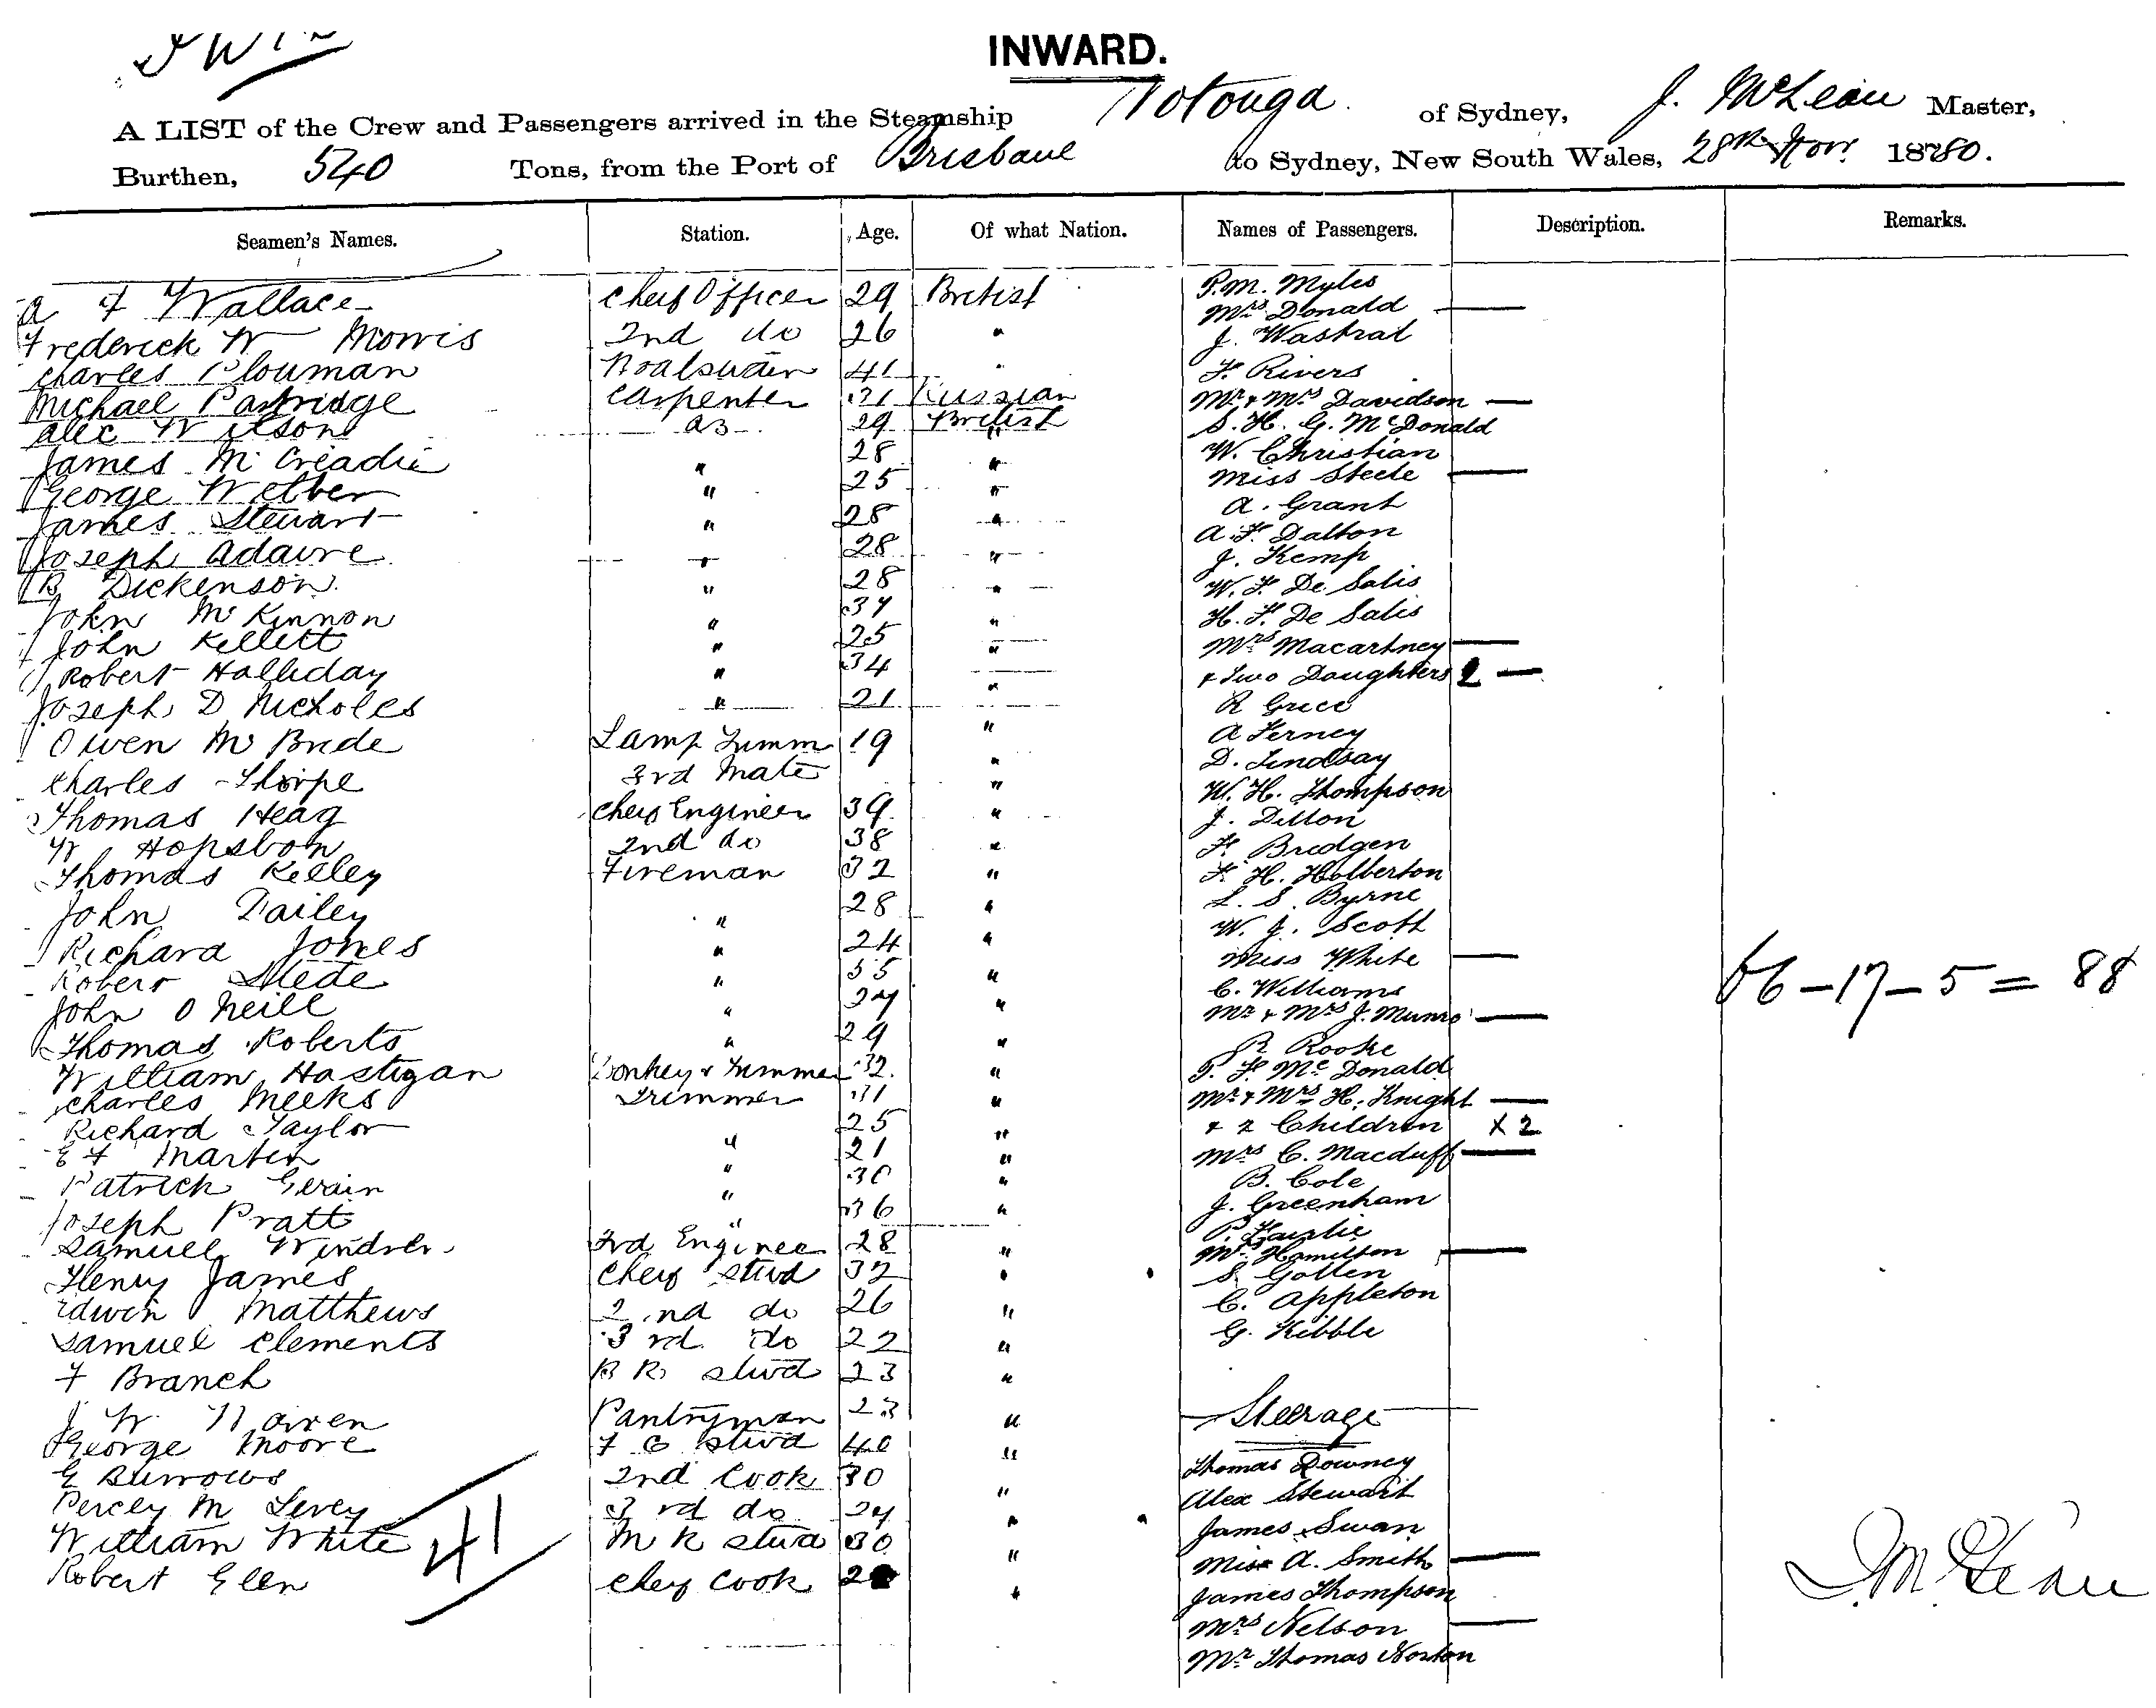 INWARD.
A LIST of the Crew and Passengers arrived in the Steamship Rotonga of Sydney, J. McLean Master,
Burthen, 540 Tons, from the Port of Brisbane to Sydney, New South Wales, 28th Novr 1880.
Seamen's Names. Station. Age. Of what Nation. Names of Passengers. Description. Remarks.
A F Wallace Chief Officer 29 British P.M. Myles
Frederick W Morris 2nd do 26 " Mrs Donald
Charles Plouman 41 " J. Wastrat
Michael Partridge Carpenter 31 Russian F. Rivers
Alec Wilson AB 29 British Mr & Mrs Davidson
James McCreadie " 28 " S. H. G. McDonald
George Webber " 25 " W. Christian
James Stewart " 28 " Miss Steele
Joseph Adaire " 28 " A. Grant
R Dickenson " 28 " A. F. Dalton
John McKinnon " 37 " J. Kemp
John Kellett " 25 " W. F. De Salis
Robert Halliday " 34 " H. F. De Salis
Joseph D Nicholes " 21 " Mrs Macartney
Owen McBride Lamp Trimm 19 " & Two Daughters 2
Charles Thorpe 3rd Mate " R Grice
Thomas Heag Chief Engineer 39 " A Ferney
W Hopsbon 2nd do 38 " D. Lindsay
Thomas Kelley Fireman 32 " W. H. Thompson
John Dailey " 28 " J. Dillon
Richard Jones " 24 " F. Bridgen
Robert Slede " 35 " F. H. Holberton
John O Neill " 27 " L. S. Byrne
Thomas Roberts " 29 " W. J. Scott
William Hastigan Donkey & Trimmer 32 " Miss White
Charles Meeks Trimmer 31 " C. Williams
Richard Taylor " 25 " Mr & Mrs J. Munro
E F Marten " 21 " R Rooke
Patrick Gerain " 30 " P. F. McDonald
Joseph Pratt " 36 " Mr & Mrs H. Knight
Samuel Windser 3rd Enginee 28 " & 2 Children x 2
Henry James Chief Stwd 32 " Mrs C. Macduff
Edwin Matthews 2nd do 26 " B. Cole
Samuel Clements 3rd do 22 " J. Greenham
F Branch B R Stwd 23 " P. Fairlie
J W Warren Pantryman 23 " Mrs Hamilton
George Moore F C Stwd 40 " S. Gollen
E Burrows 2nd Cook 30 " C. Appleton
Percey M Levey 3rd do 27 " G. Kibble
William White M R Stwd 30 "
Robert Glen Chief Cook "
41
Steerage
Thomas Downey
Alex Stewart
James Swan
Miss A. Smith
James Thompson
Mrs Nelson
Mr Thomas Norton
66 – 17 – 5 = 88
J. McLean